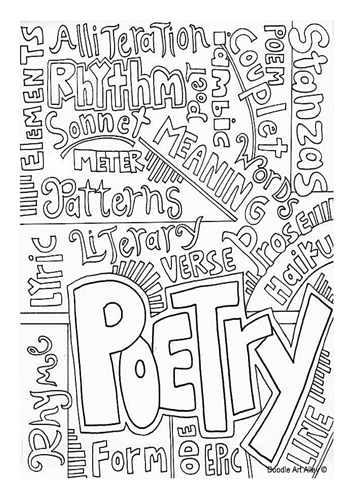 ELEMENTS
Alliteration
Rhythm
Sonnet
METER
Patterns
Poet
iambic
POEM
Couplet
Stanzas
MEANING
Words
Prose
Haiku
Lyric
Literary
VERSE
POETRY
Rhyme
Form
ODE
EPIC
LINE
Doodle Art Alley ©